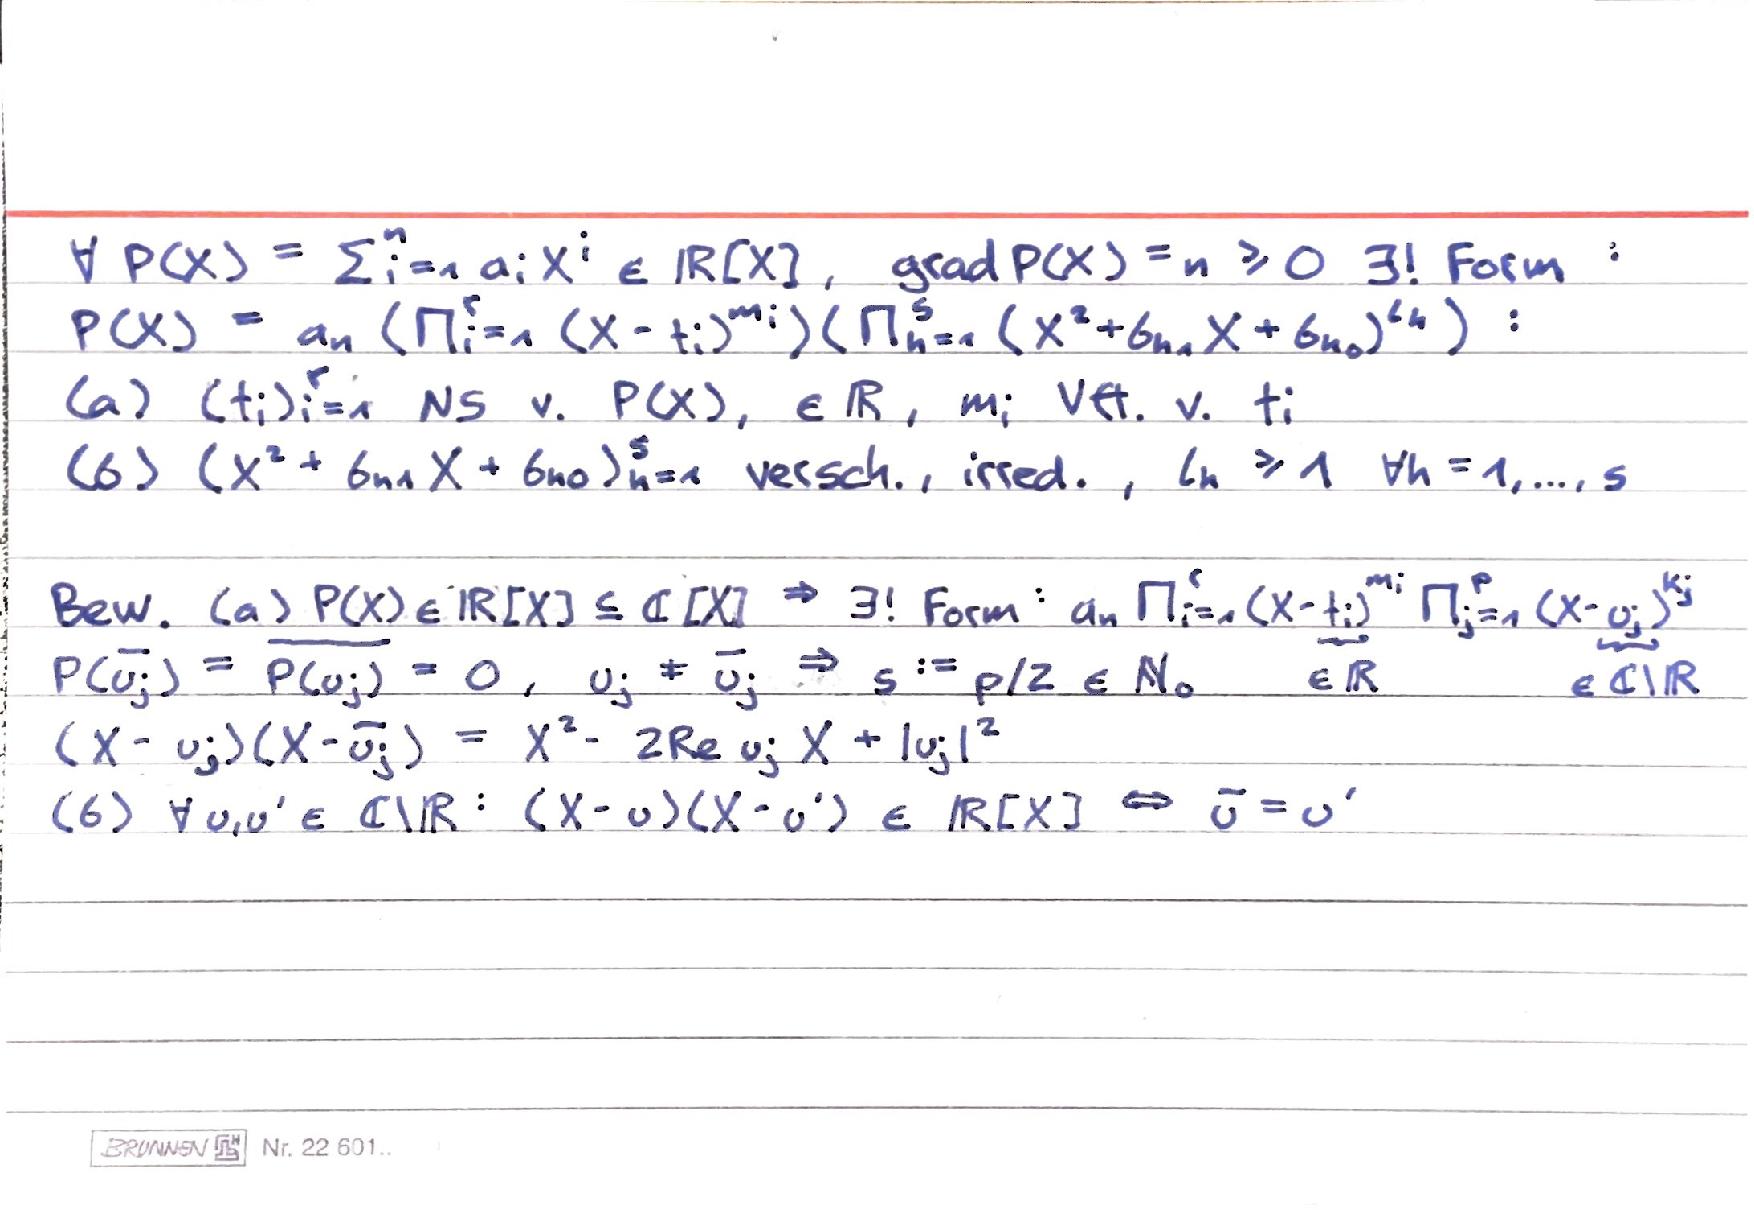 ∀ P(X) = Σⁿᵢ₌₁ aᵢ Xⁱ ∈ ℝ[X], grad P(X) = n ⩾ 0 ∃! Form :
P(X) = aₙ (Πʳᵢ₌₁ (X - tᵢ)^{mᵢ})(Πˢₕ₌₁ (X² + b_{h1} X + b_{h0})^{lₕ}) :
(a) (tᵢ)ʳᵢ₌₁ NS v. P(X), ∈ ℝ, mᵢ Vft. v. tᵢ
(b) (X² + b_{h1} X + b_{h0})ˢₕ₌₁ versch., irred., lₕ ⩾ 1 ∀h = 1, ..., s
Bew. (a) P(X) ∈ ℝ[X] ⊆ ℂ[X] ⇒ ∃! Form : aₙ Πʳᵢ₌₁ (X - tᵢ)^{mᵢ} Πᵖⱼ₌₁ (X - υⱼ)^{kⱼ}
P(ῡⱼ) = \overline{P(υⱼ)} = 0, υⱼ ≠ ῡⱼ ⇒ s := p/2 ∈ ℕ₀ ∈ ℝ ∈ ℂ\ℝ
(X - υⱼ)(X - ῡⱼ) = X² - 2Re υⱼ X + |υⱼ|²
(b) ∀ υ, υ' ∈ ℂ\ℝ : (X - υ)(X - υ') ∈ ℝ[X] ⇔ ῡ = υ'
BRUNNEN Nr. 22 601..